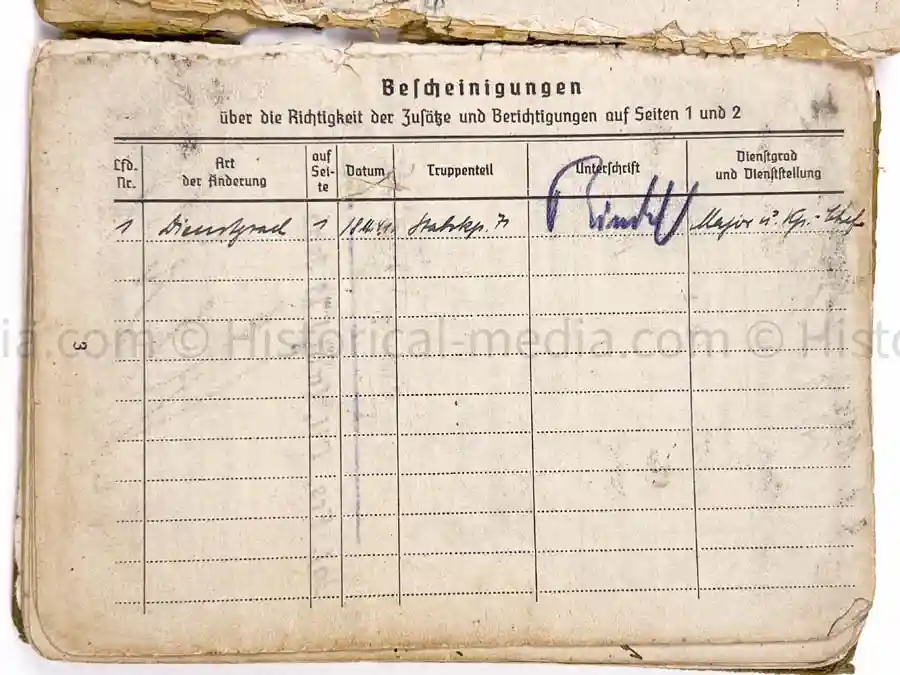 Bescheinigungen
über die Richtigkeit der Zusätze und Berichtigungen auf Seiten 1 und 2
Lfd. Nr.
Art der Änderung
auf Sei-te
Datum
Truppenteil
Unterschrift
Dienstgrad und Dienststellung
1 Dienstgrad 1 Stabskp. Major u. Kp.-Chef
ia.com © Historical-media.com © Histo
3